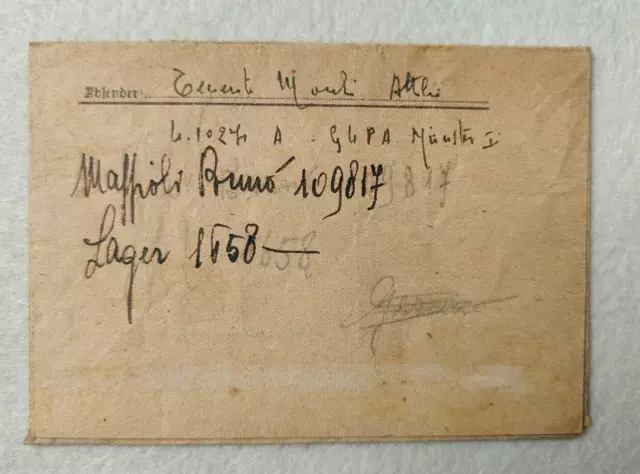 Absender: Tenente Monti Attilio
N. 1027 A - GWPA Münster I
Maffioli Bruno 109817
Lager 1658